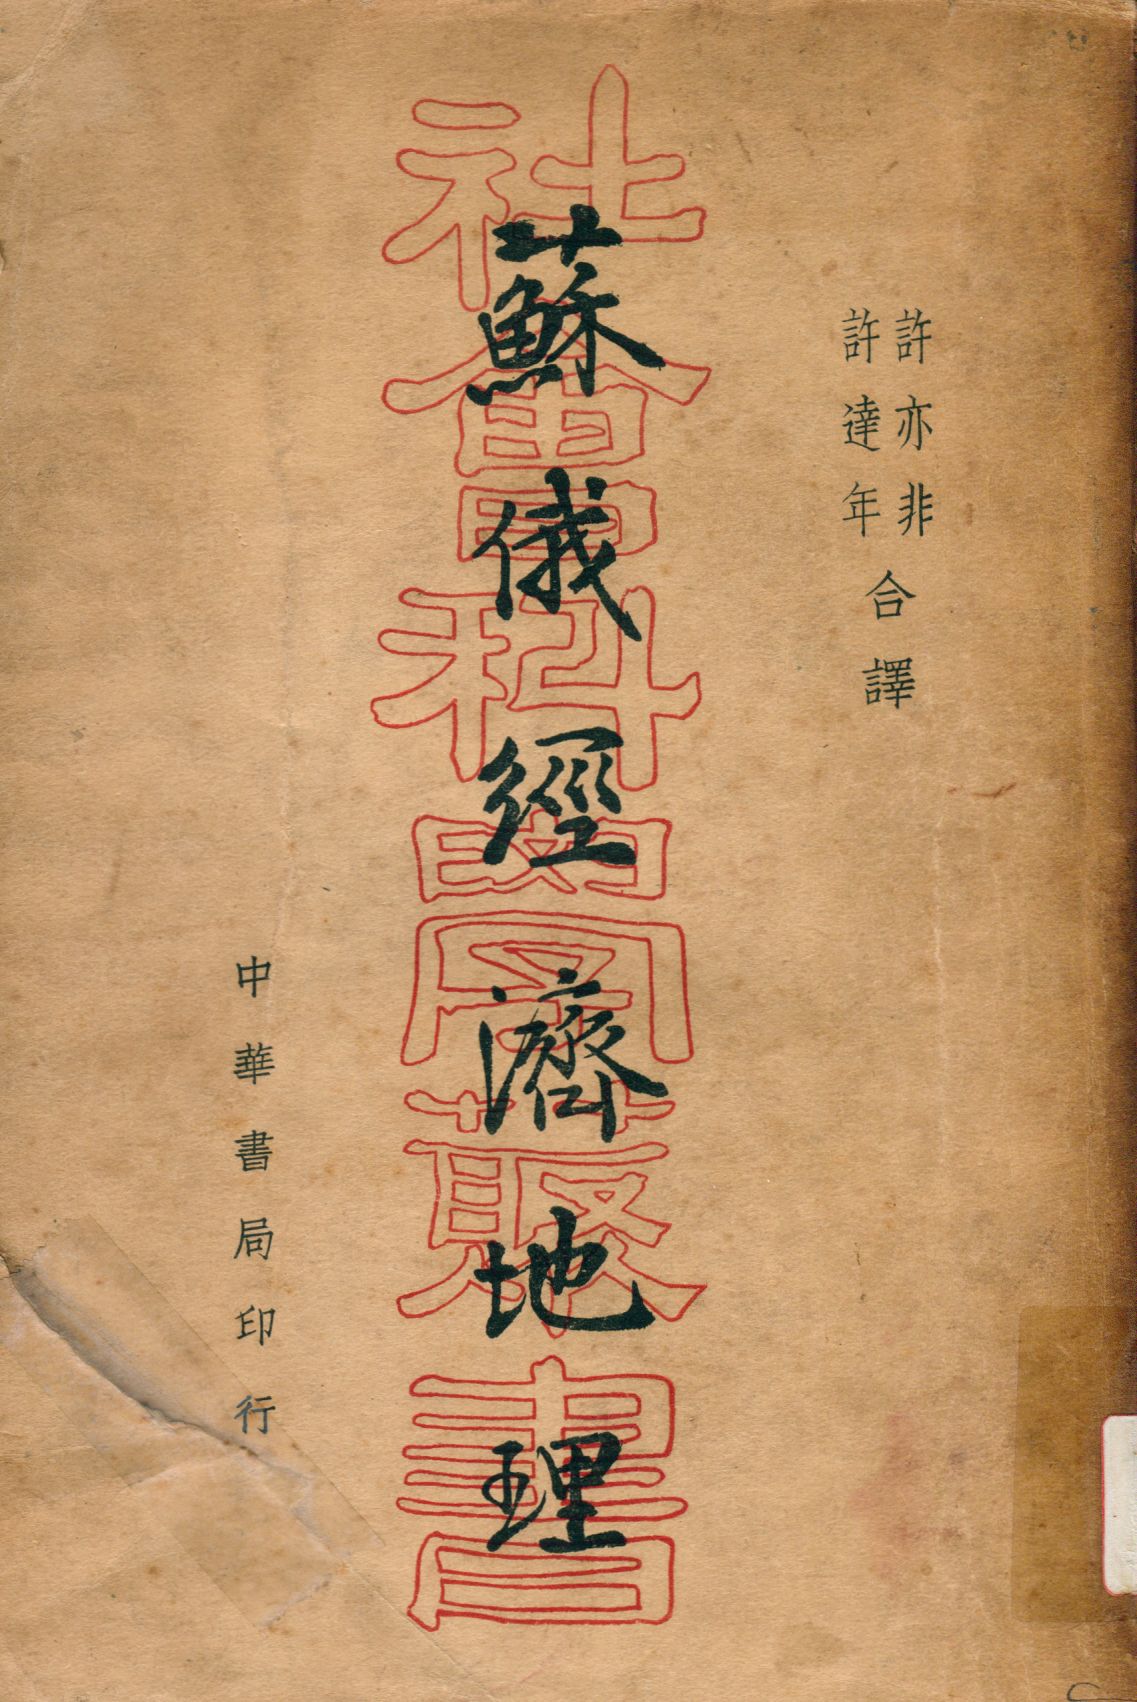 許亦非
許達年
合譯
蘇俄經濟地理
社會科學叢書
中華書局印行